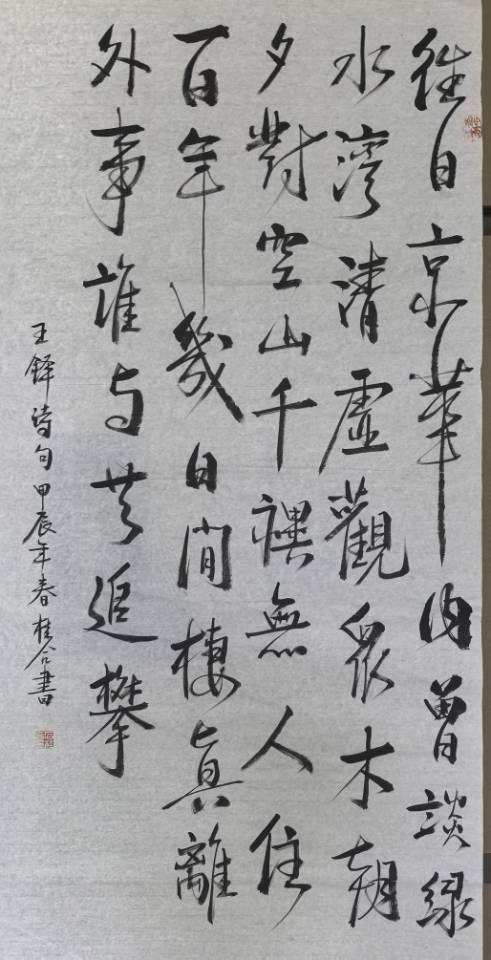 往日京華內曾談綠
水灣清虛觀眾木朝
夕對空山千禩無人住
百年幾日閒棲真離
外事誰与共追攀
王鐸詩句甲辰年春桂合書